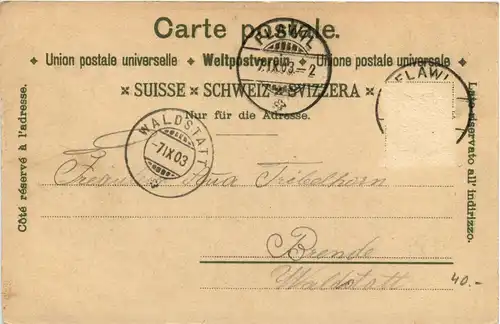 Carte postale.
✦ Union postale universelle ✦ Weltpostverein ✦ Unione postale universale ✦
× SUISSE × SCHWEIZ × SVIZZERA ×
Nur für die Adresse.
Côté réservé à l'adresse.
Lato riservato all' indirizzo.
FLAWIL
7.IX.03–2
FLAWIL
WALDSTATT
–7.IX.03
Tribelhorn
Waldstatt
40.-